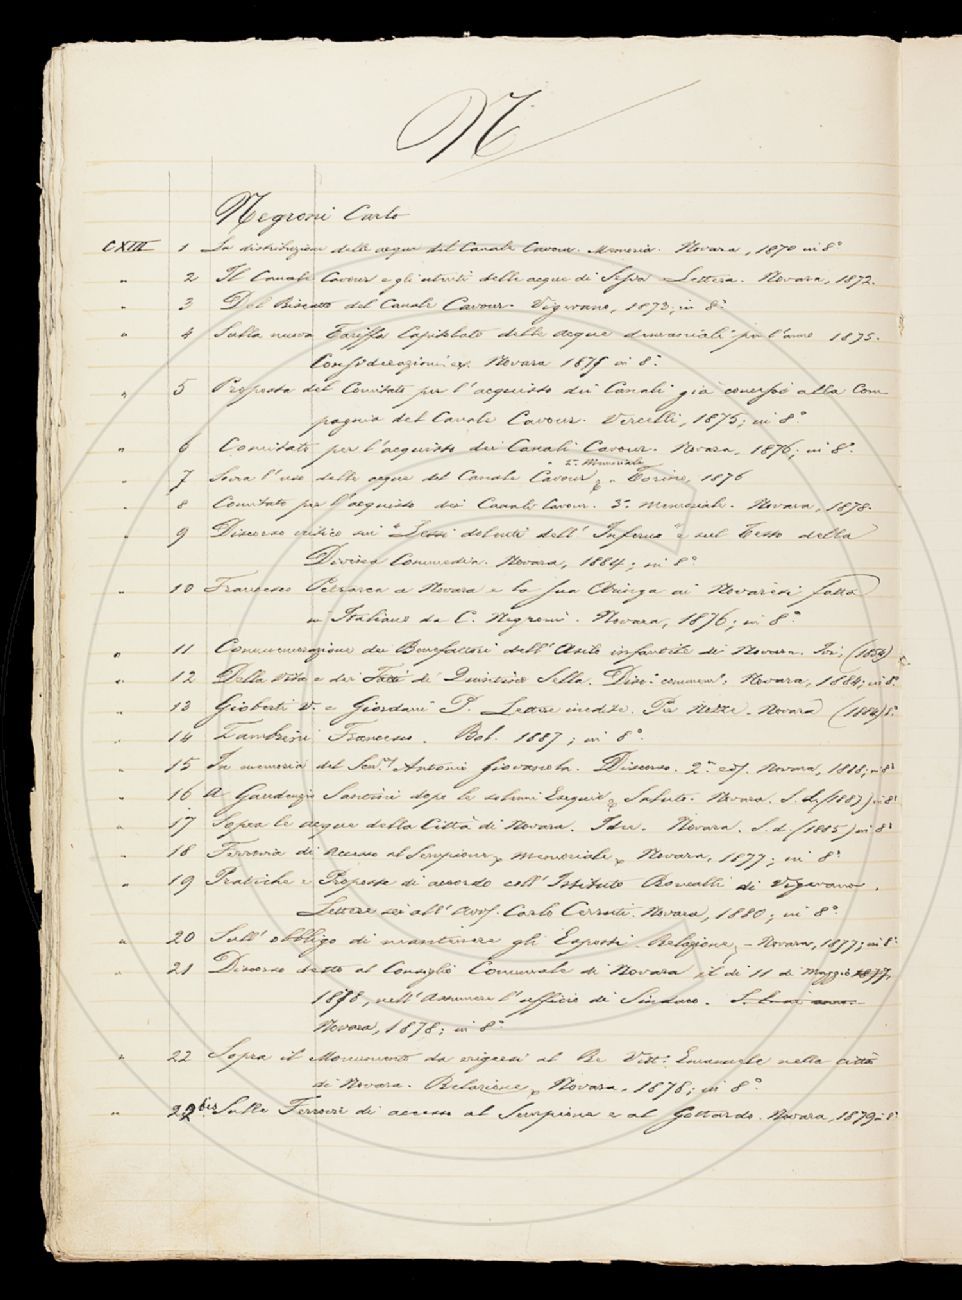 N
Negroni Carlo
CXIII 1 La distribuzione delle acque del Canale Cavour. Memoria. Novara, 1870 in 8°
" 2 Il Canale Cavour e gli utenti delle acque di Sesia Lettera. Novara, 1872.
" 3 Del Riscatto del Canale Cavour. Vigevano, 1873; in 8°
" 4 Sulla nuova Tariffa Capitolato delle acque demaniali per l'anno 1875.
Considerazioni ec. Novara 1875 in 8°.
" 5 Proposta del Comitato per l'acquisto dei Canali già concessi alla Com
pagnia del Canale Cavour. Vercelli, 1875; in 8°
" 6 Comitato per l'acquisto dei Canali Cavour. Novara, 1876; in 8°.
" 2° Memoriale
" 7 Sovra l'uso delle acque del Canale Cavour, Torino, 1876
" 8 Comitato per l'acquisto dei Canali Cavour. 3° Memoriale. Novara, 1878.
" 9 Discorso critico sui "Lessi dolenti dell'Inferno" e sul Testo della
Divina Commedia. Novara, 1884; in 8°
" 10 Francesco Petrarca a Novara e la sua Aringa ai Novaresi fatta
in Italiano da C. Negroni. Novara, 1876; in 8°
" 11 Commemorazione dei Benefattori dell'Asilo infantile di Novara. Ivi, (1859)
" 12 Della Vita e dei Fatti di Quintino Sella. Disc. commem.; Novara, 1884; in 8°
" 13 Gioberti V. e Giordani P. Lettere inedite. Per Nozze. Novara (1884) 8°
" 14 Zambrini Francesco. Bol. 1887; in 8°.
" 15 In memoria del Sen.re Antonio Giovanola. Discorso. 2a ed. Novara, 1888; in 8°
" 16 A Gaudenzio Santini dopo le solenni Esequie, Saluto. Novara. S. d. (1887) in 8°
" 17 Sopra le acque della Città di Novara. Idee. Novara. S. d (1885) in 8°
" 18 Ferrovia di accesso al Sempione, Memoriale, Novara, 1877; in 8°
" 19 Pratiche e Proposte di accordo coll'Istituto Roncalli di Vigevano.
Lettere sei all'avv. Carlo Cerruti. Novara, 1880; in 8°.
" 20 Sull'obbligo di mantenere gli Esposti. Relazione, - Novara, 1877; in 8°
" 21 Discorso detto al Consiglio Comunale di Novara il dì 11 di Maggio 1877,
1878, nell'assumere l'ufficio di Sindaco. S. luogo anno.
Novara, 1878; in 8°
" 22 Sopra il Monumento da erigersi al Re Vitt.o Emanuele nella città
di Novara. Relazione, Novara, 1878; in 8°.
" 22bis Sulle Ferrovie di accesso al Sempione e al Gottardo. Novara, 1879 in 8°